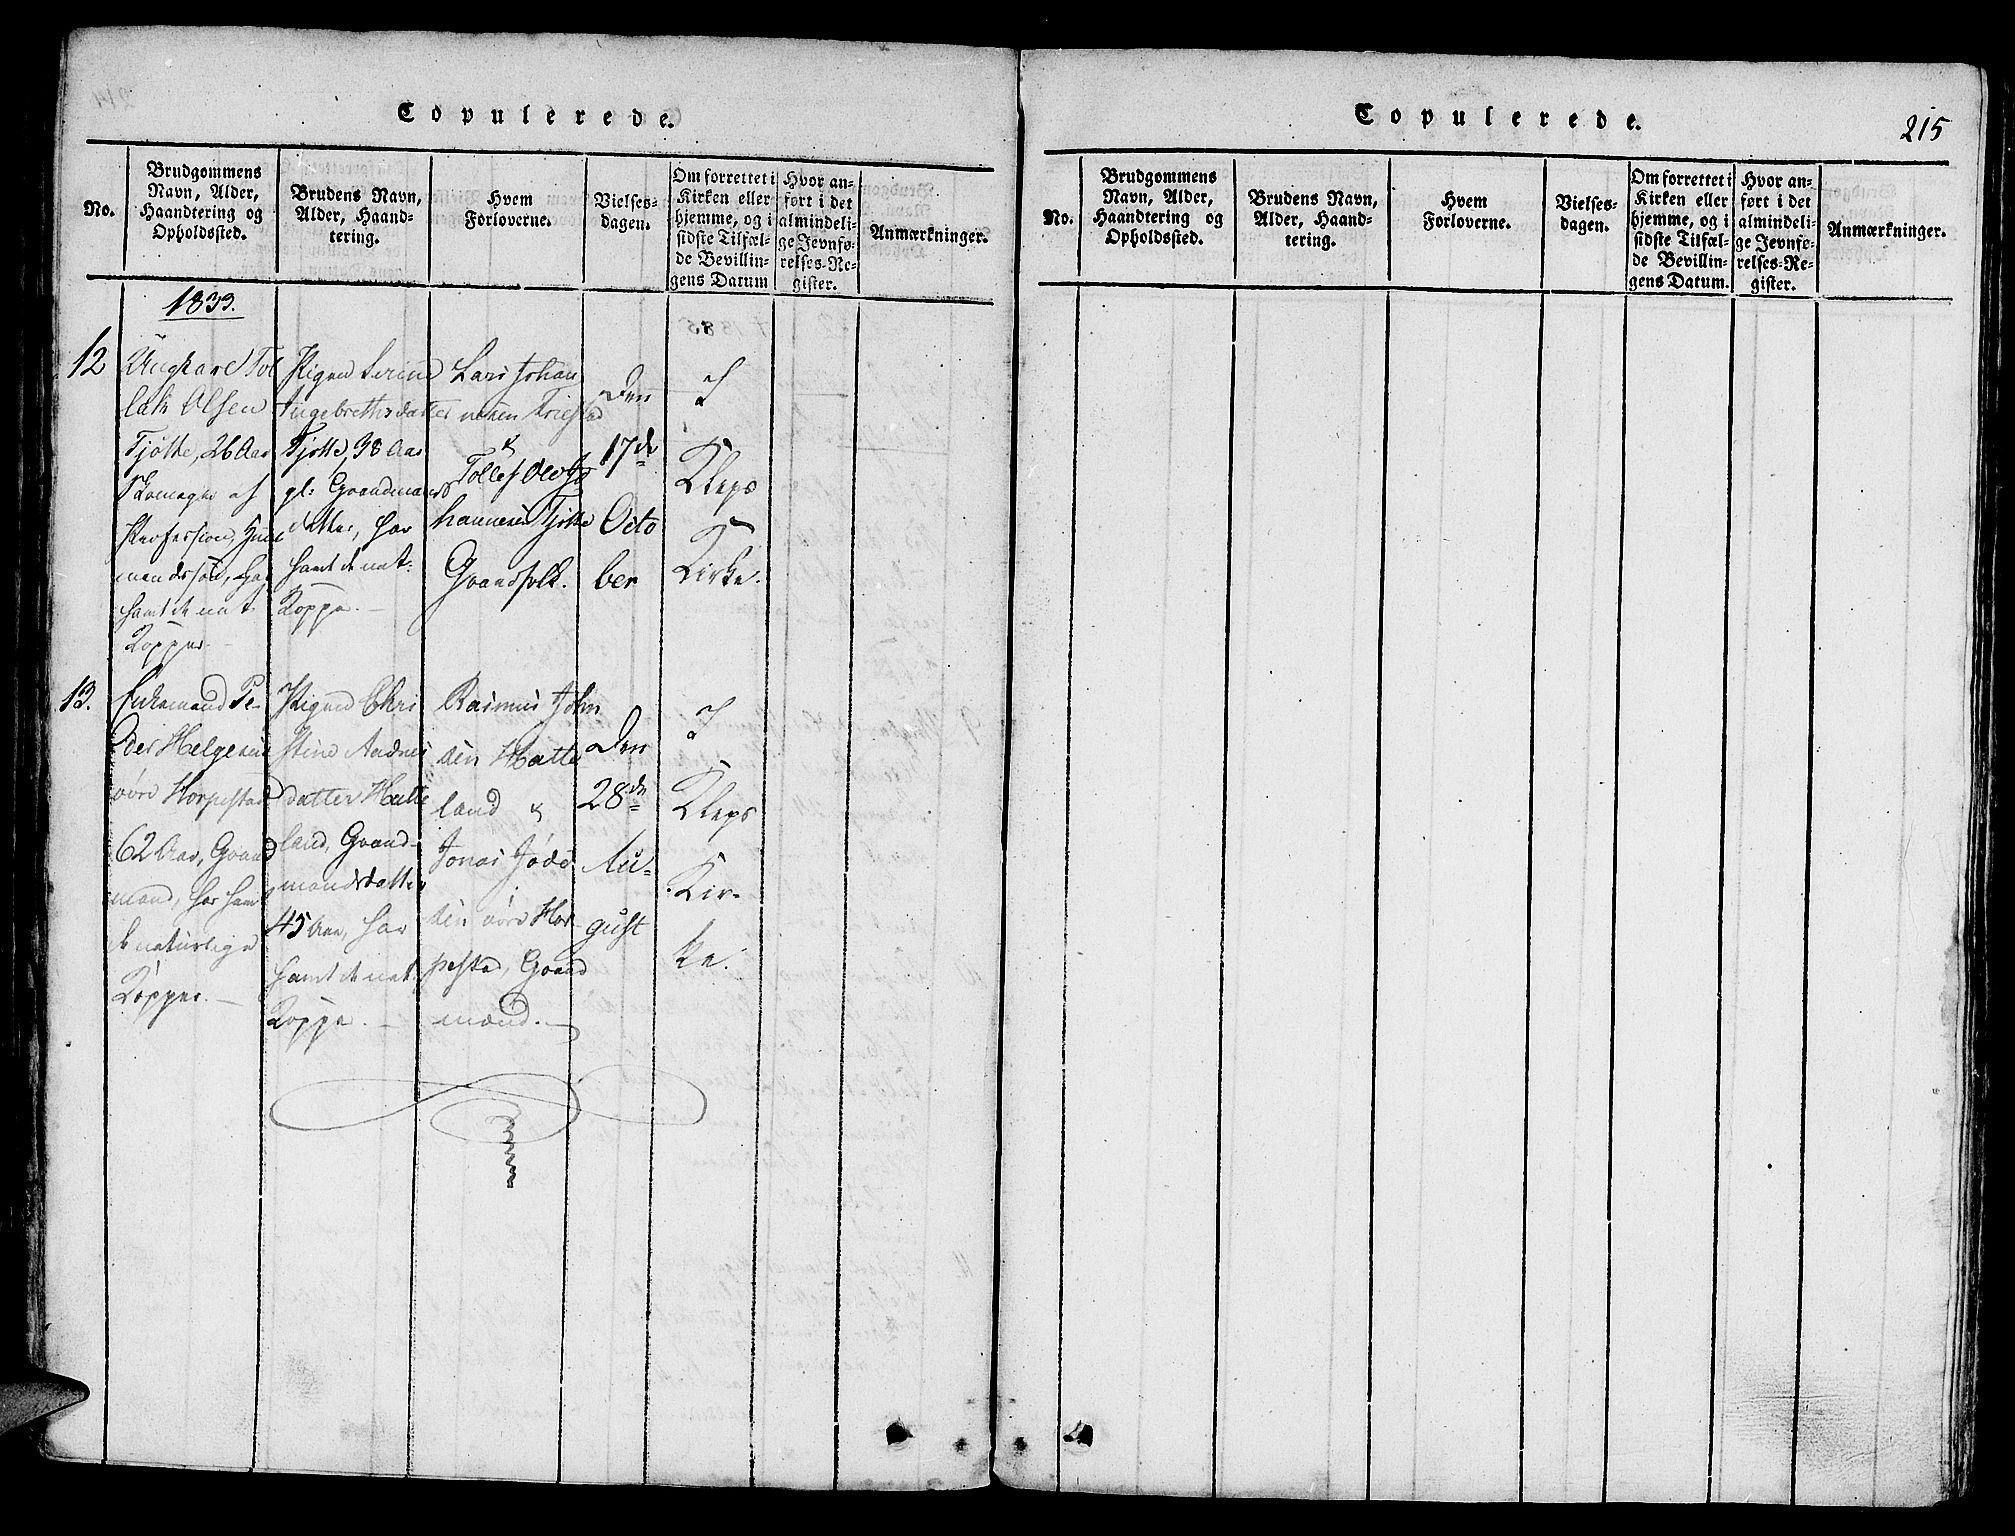 Copulerede.
No.
Brudgommens
Navn, Alder,
Haandtering og
Opholdssted.
Brudens Navn,
Alder, Haand-
tering.
Hvem
Forloverne.
Vielses-
dagen.
Om forrettet i
Kirken eller
hjemme, og i
sidste Tilfæl-
de Bevillin-
gens Datum
Hvor an-
ført i det
almindeli-
ge Jevnfø-
relses-Re-
gister.
Anmærkninger.
1833.
12
Ungkarl Tol
lak Olsen
Tjøtte, 26 Aar
Skomager af
Profession,
mandssøn, har
havt de nat.
Kopper.
Pigen Serine
Ingebrethsdatter
Tjøtte, 38 Aar
gl: Gaardmands
datter, har
havt de nat:
Koppe.
Lars Johan
nesen Friestad
&
Tollef
hannesen Tjøtte
Gaardfolk.
Den
17de
Octo
ber
I
Kleps
Kirke.
13.
Enkemand Pe-
der Helgesen
øvre Horpestad
62 Aar, Gaard
mand, har havt
de naturlige
Kopper.
Pigen Chri
stine Aadnes
datter Hatte
land, Gaard-
mandsdatter
45 Aar, har
havt de nat.
Koppe.
Rasmus John
sen Hatte
land &
Jonas
sen øvre Hor-
pestad, Gaard
mænd.
Den
28de
Au-
gust
I
Kleps
Kir-
ke.
Copulerede.
215
No.
Brudgommens
Navn, Alder,
Haandtering og
Opholdssted.
Brudens Navn,
Alder, Haand-
tering.
Hvem
Forloverne.
Vielses-
dagen.
Om forrettet i
Kirken eller
hjemme, og i
sidste Tilfæl-
de Bevillin-
gens Datum.
Hvor an-
ført i det
almindeli-
ge Jevnfø-
relses-Re-
gister.
Anmærkninger.